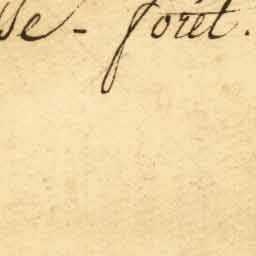 sse - forêt.